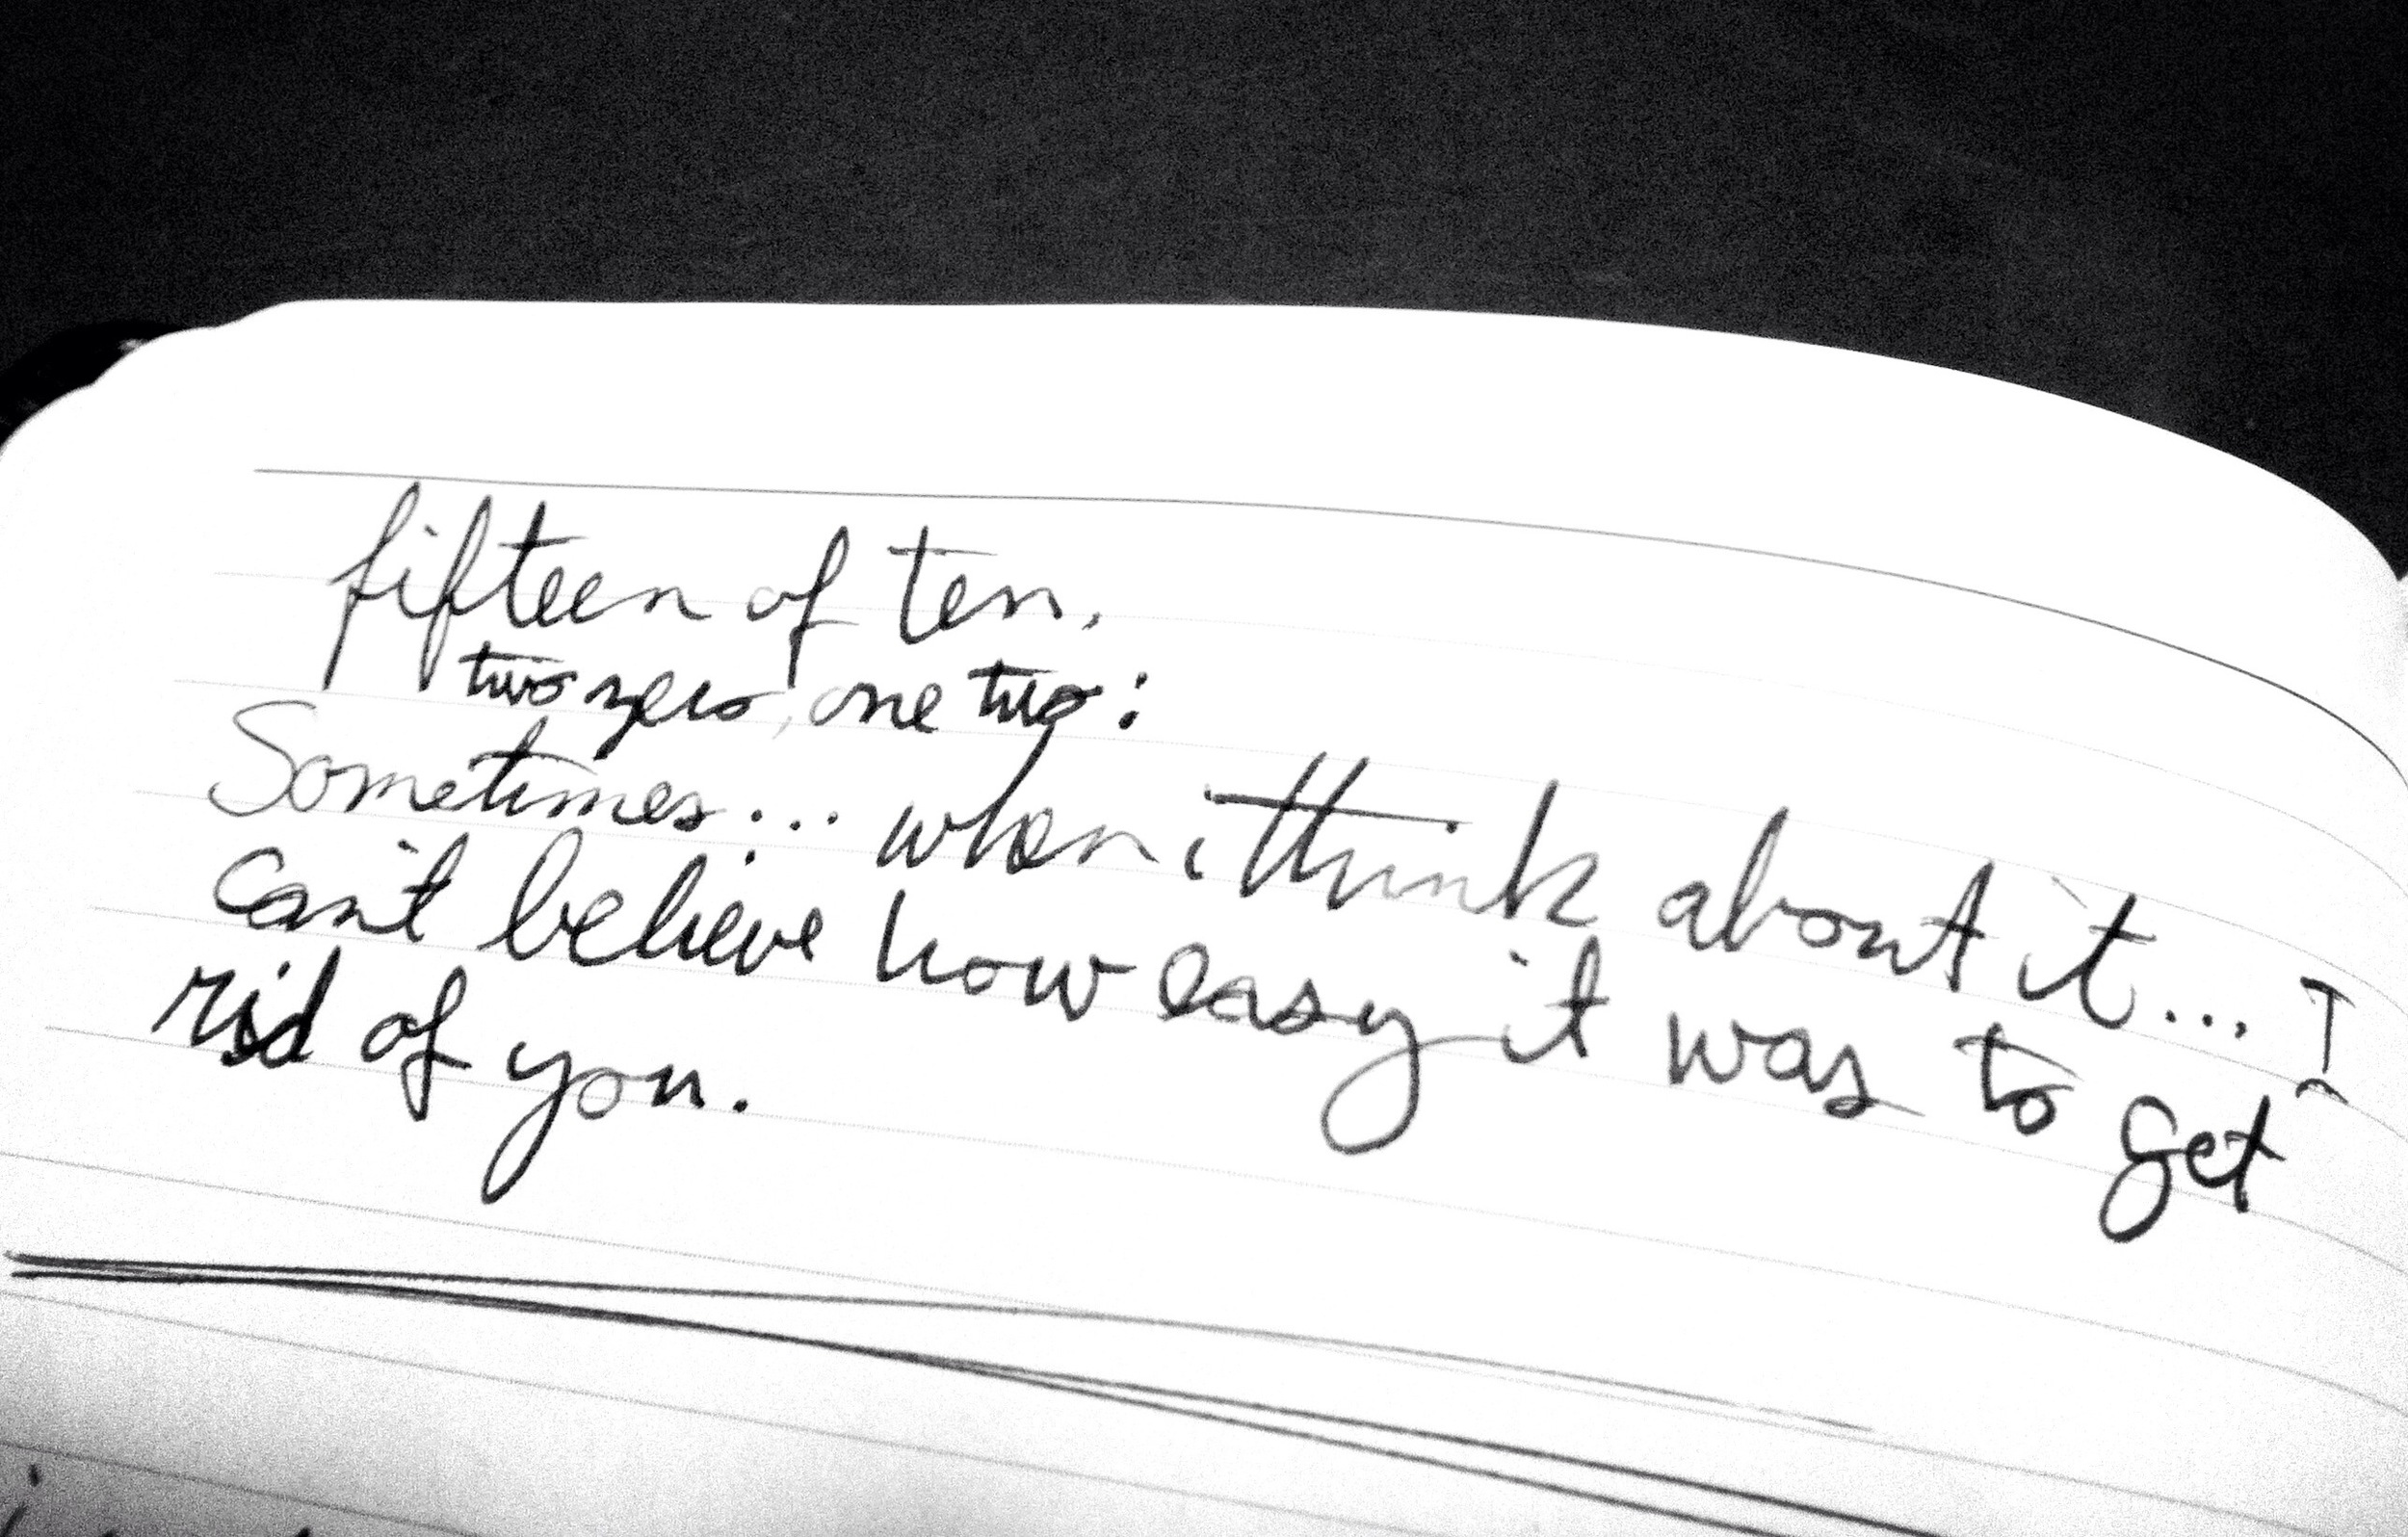 fifteen of ten,
two zero, one two:
Sometimes... when i think about it... I
can't believe how easy it was to get
rid of you.